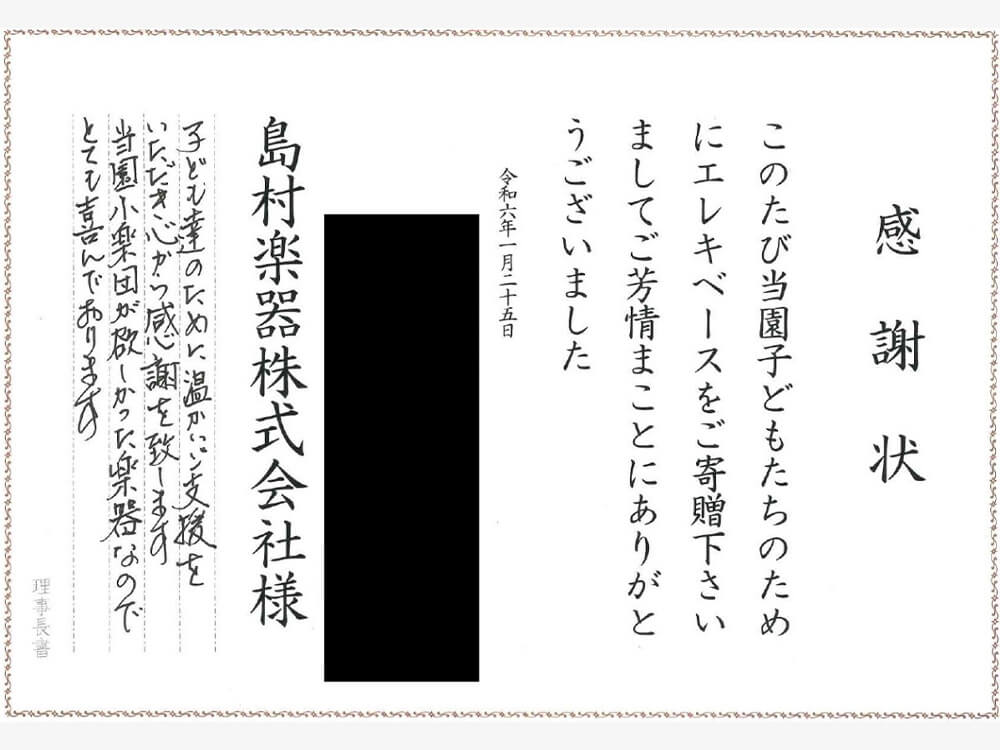 感謝状
このたび当園子どもたちのため
にエレキベースをご寄贈下さい
ましてご芳情まことにありがと
うございました
令和六年一月二十五日
島村楽器株式会社様
子ども達のために温かいご支援を
いただき心から感謝を致します
当園小楽団が欲しかった楽器なので
とても喜んでおります
理事長書